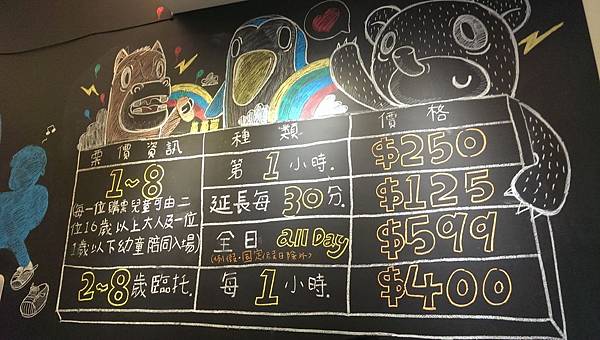 票價資訊
種類
價格
1~8
(每一位購票兒童可由二
位16歲以上大人及一位
1歲以下幼童陪同入場)
第1小時.
$250
延長每30分.
$125
全日 all Day
$599
2~8歲臨托.
每1小時.
$400